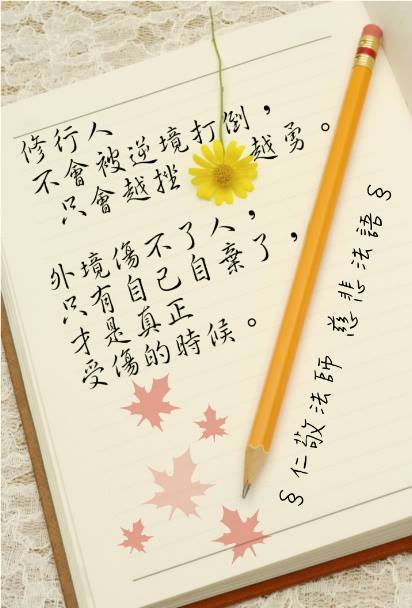 修行人
不會被逆境打倒，
只會越挫越勇。
外境傷不了人，
只有自己自棄了，
才是真正
受傷的時候。
§仁敬法師 慈悲法語§